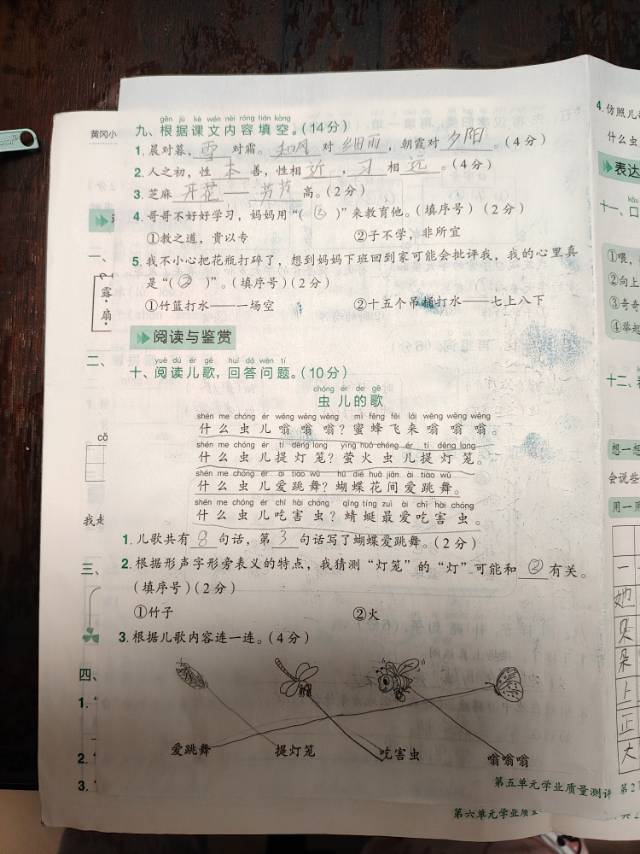 黄冈小
gēn jù kè wén nèi róng tián kòng
九、根据课文内容填空。(14分)
1. 晨对暮，雪对霜。和风对细雨，朝霞对夕阳。(4分)
2. 人之初，性本善，性相近，习相远。(4分)
3. 芝麻开花——节节高。(2分)
4. 哥哥不好好学习，妈妈用“( ② )”来教育他。(填序号)(2分)
①教之道，贵以专 ②子不学，非所宜
5. 我不小心把花瓶打碎了，想到妈妈下班回到家可能会批评我，我的心里真
是“( ② )”。(填序号)(2分)
①竹篮打水——一场空 ②十五个吊桶打水——七上八下
阅读与鉴赏
yuè dú ér gē huí dá wèn tí
十、阅读儿歌，回答问题。(10分)
chóng ér de gē
虫儿的歌
shén me chóng ér wēng wēng wēng mì fēng fēi lái wēng wēng wēng
什么虫儿嗡嗡嗡？蜜蜂飞来嗡嗡嗡。
shén me chóng ér tí dēng long yíng huǒ chóng ér tí dēng long
什么虫儿提灯笼？萤火虫儿提灯笼。
shén me chóng ér ài tiào wǔ hú dié huā jiān ài tiào wǔ
什么虫儿爱跳舞？蝴蝶花间爱跳舞。
shén me chóng ér chī hài chóng qīng tíng zuì ài chī hài chóng
什么虫儿吃害虫？蜻蜓最爱吃害虫。
1. 儿歌共有8句话，第3句话写了蝴蝶爱跳舞。(2分)
2. 根据形声字形旁表义的特点，我猜测“灯笼”的“灯”可能和②有关。
(填序号)(2分)
①竹子 ②火
3. 根据儿歌内容连一连。(4分)
爱跳舞 提灯笼 吃害虫 嗡嗡嗡
第五单元学业质量测评
第六单元学业质
一、
露
扇
二、
cǒ
我走
三、
四、
1.
2.
3.
4. 仿照儿
什么虫
表达
十一、口
①喂，
②向上
③奇奇
④举起
十二、
想一想
会说些
用一
一
她
贝
朵
上
正
大
第2